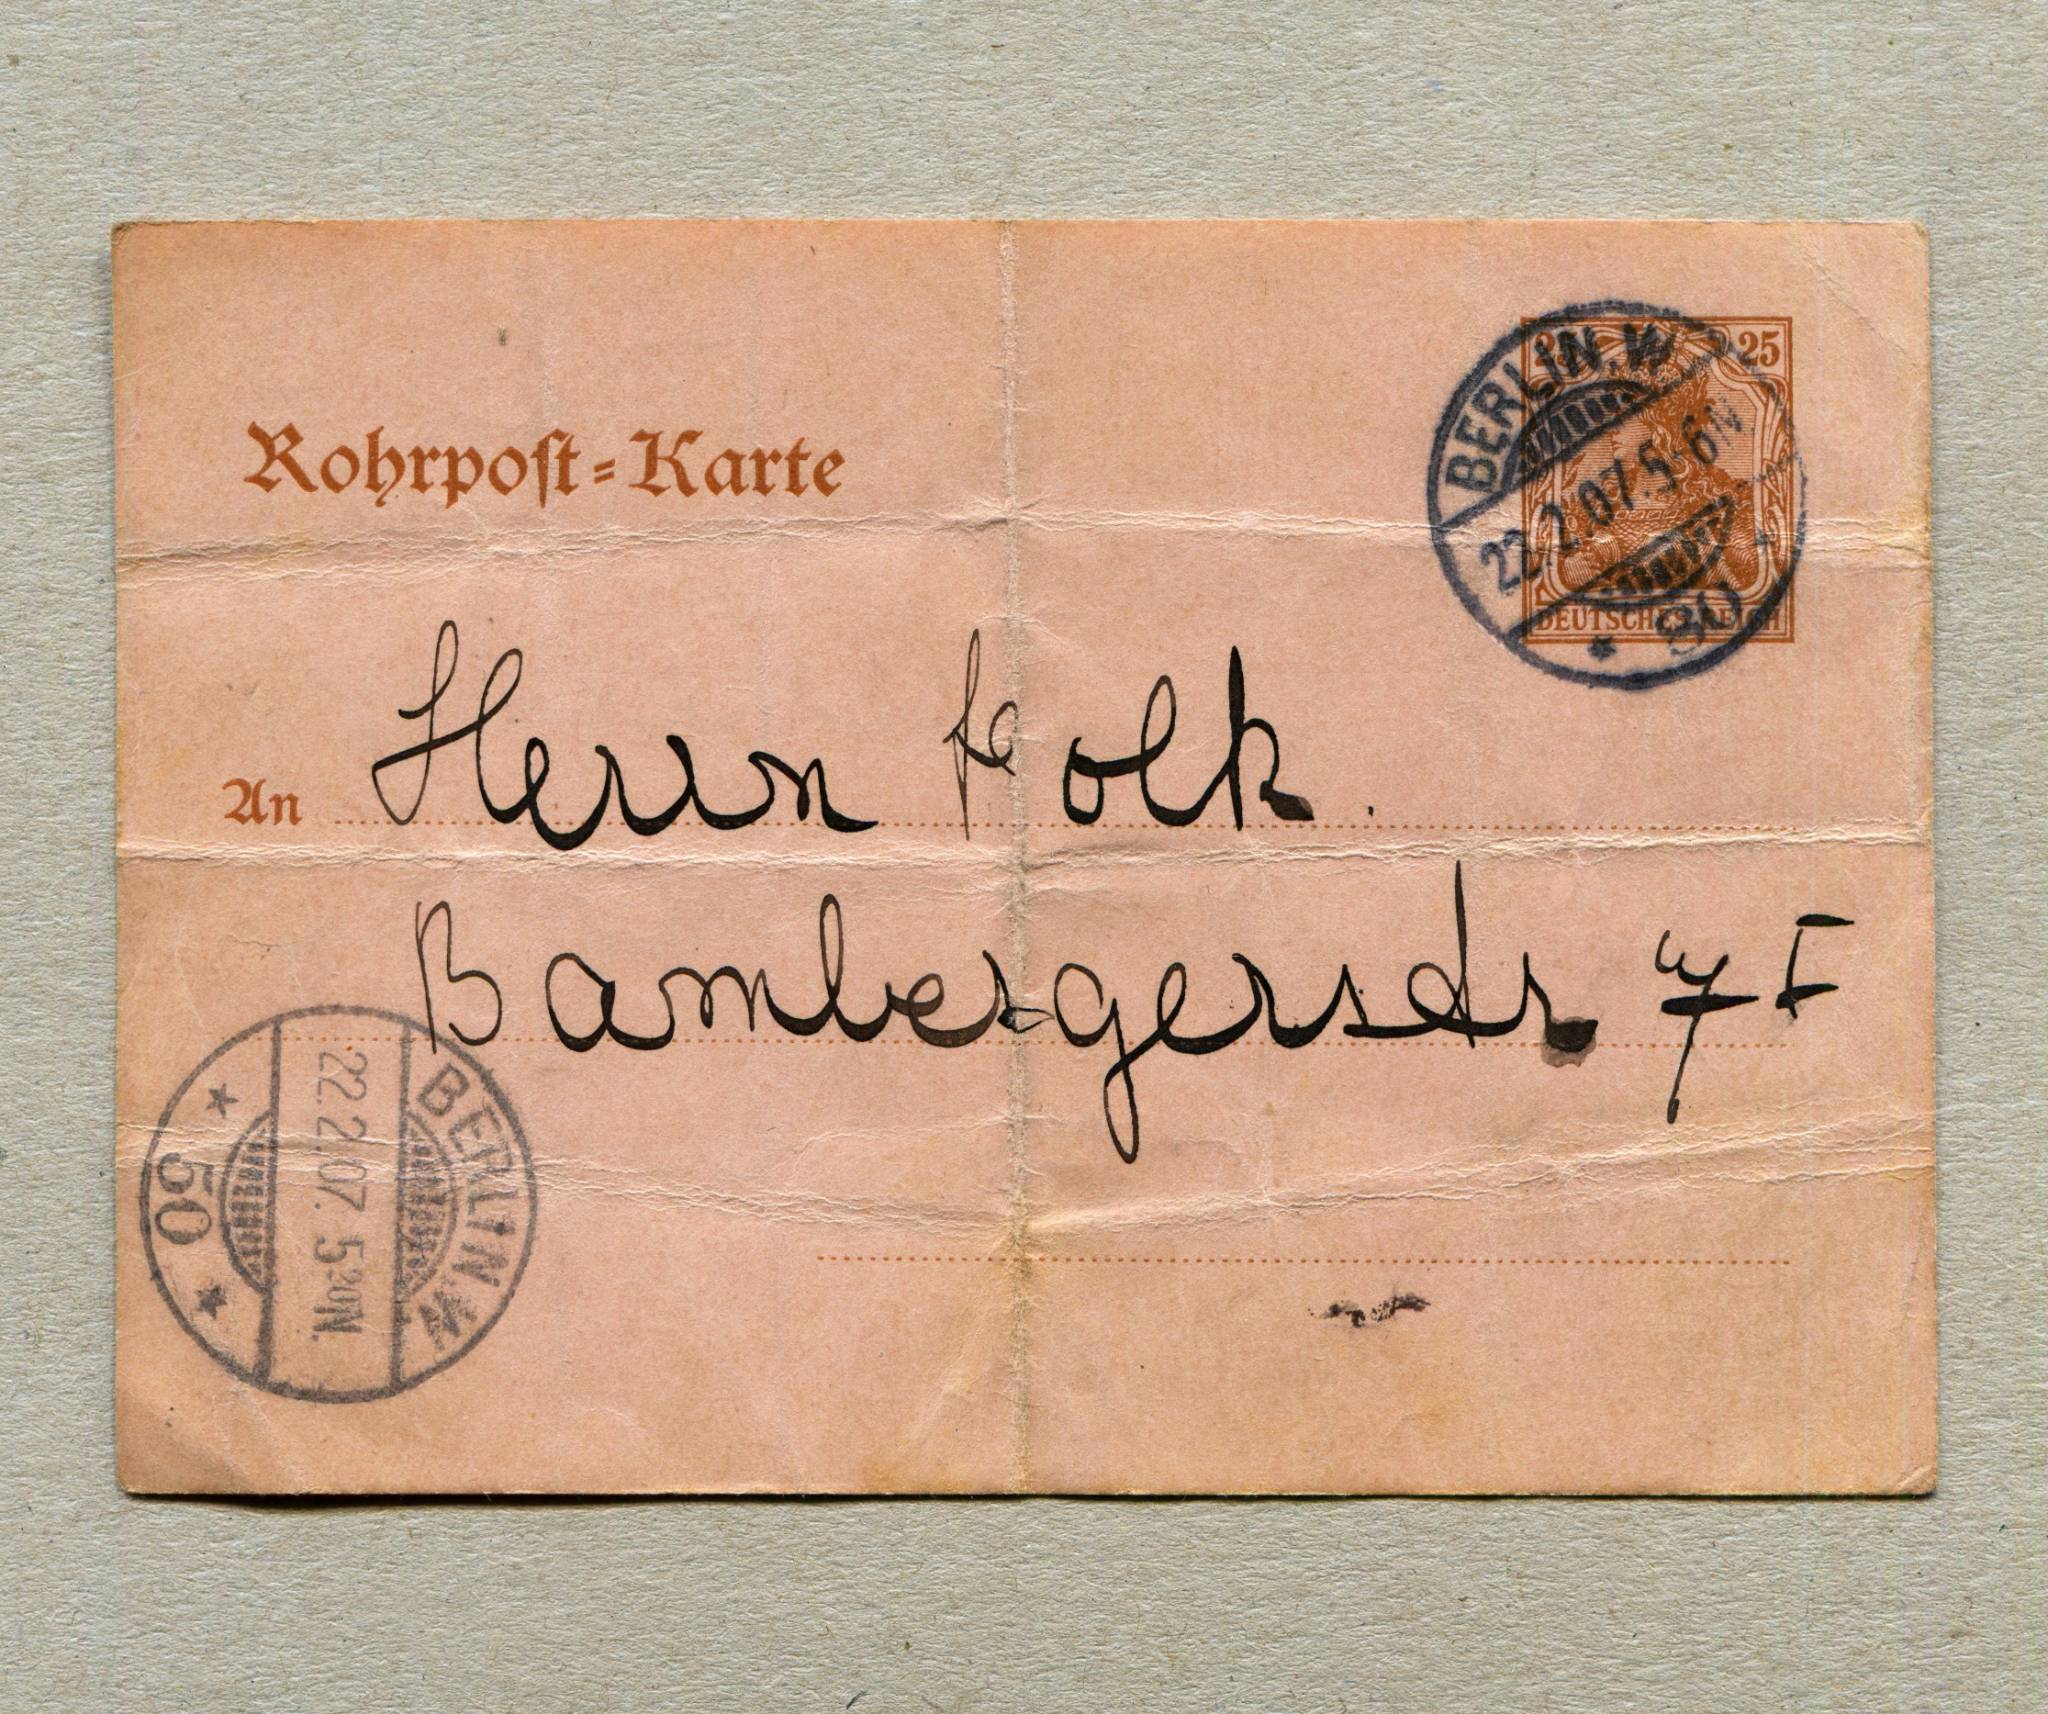 25 25
DEUTSCHES REICH
BERLIN.W
22.2.07.5-6N.
* 30
Rohrpoſt-Karte
An Herrn Polk.
Bambergerstr 7 I
BERLIN.W.
22.2.07. 5²⁰N.
* 50 *